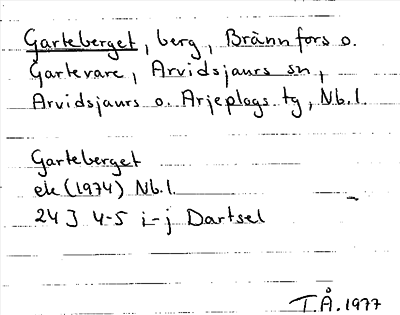 Garteberget, berg, Brännfors o.
Gartevare, Arvidsjaurs sn,
Arvidsjaurs o. Arjeplogs tg, Nb. l.
Garteberget
ek (1974) Nb. l.
24 J 4-5 i-j Dartsel
T.Å. 1977